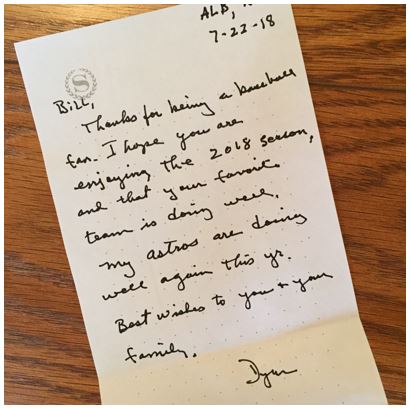 ALB,
7-22-18
S
Bill,
Thanks for being a baseball
fan. I hope you are
enjoying the 2018 season,
and that your favorite
team is doing well.
my astros are doing
well again this yr.
Best wishes to you + your
family.